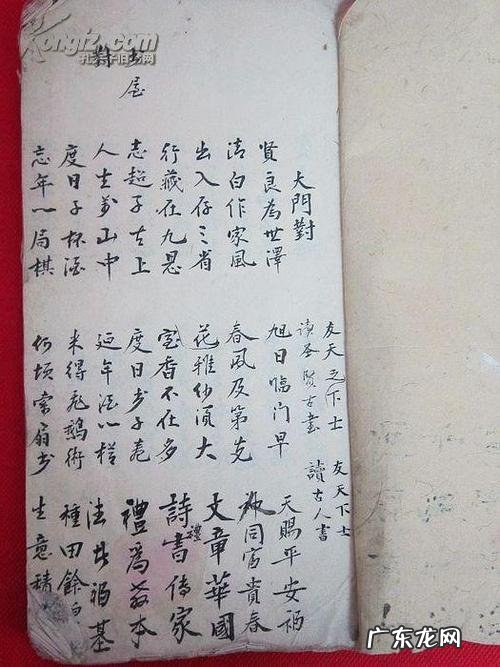 Kongfz.com
孔夫子旧书网
對
屋
大門對
賢良為世澤
清白作家風
出入存三省
行藏在九思
志超千古上
人在萬山中
度日千杯酒
忘年一局棋
友天之下士
读圣賢古書
旭日臨门早
春風及第先
花雅
室香不在多
度日
延年酒一
来得鹅術
何須索扇书
友天下士
讀古人書
天賜平安福
同富貴春
文章華國
詩書傳家
禮
禮為本
福基
種田餘
生意
广东龙网